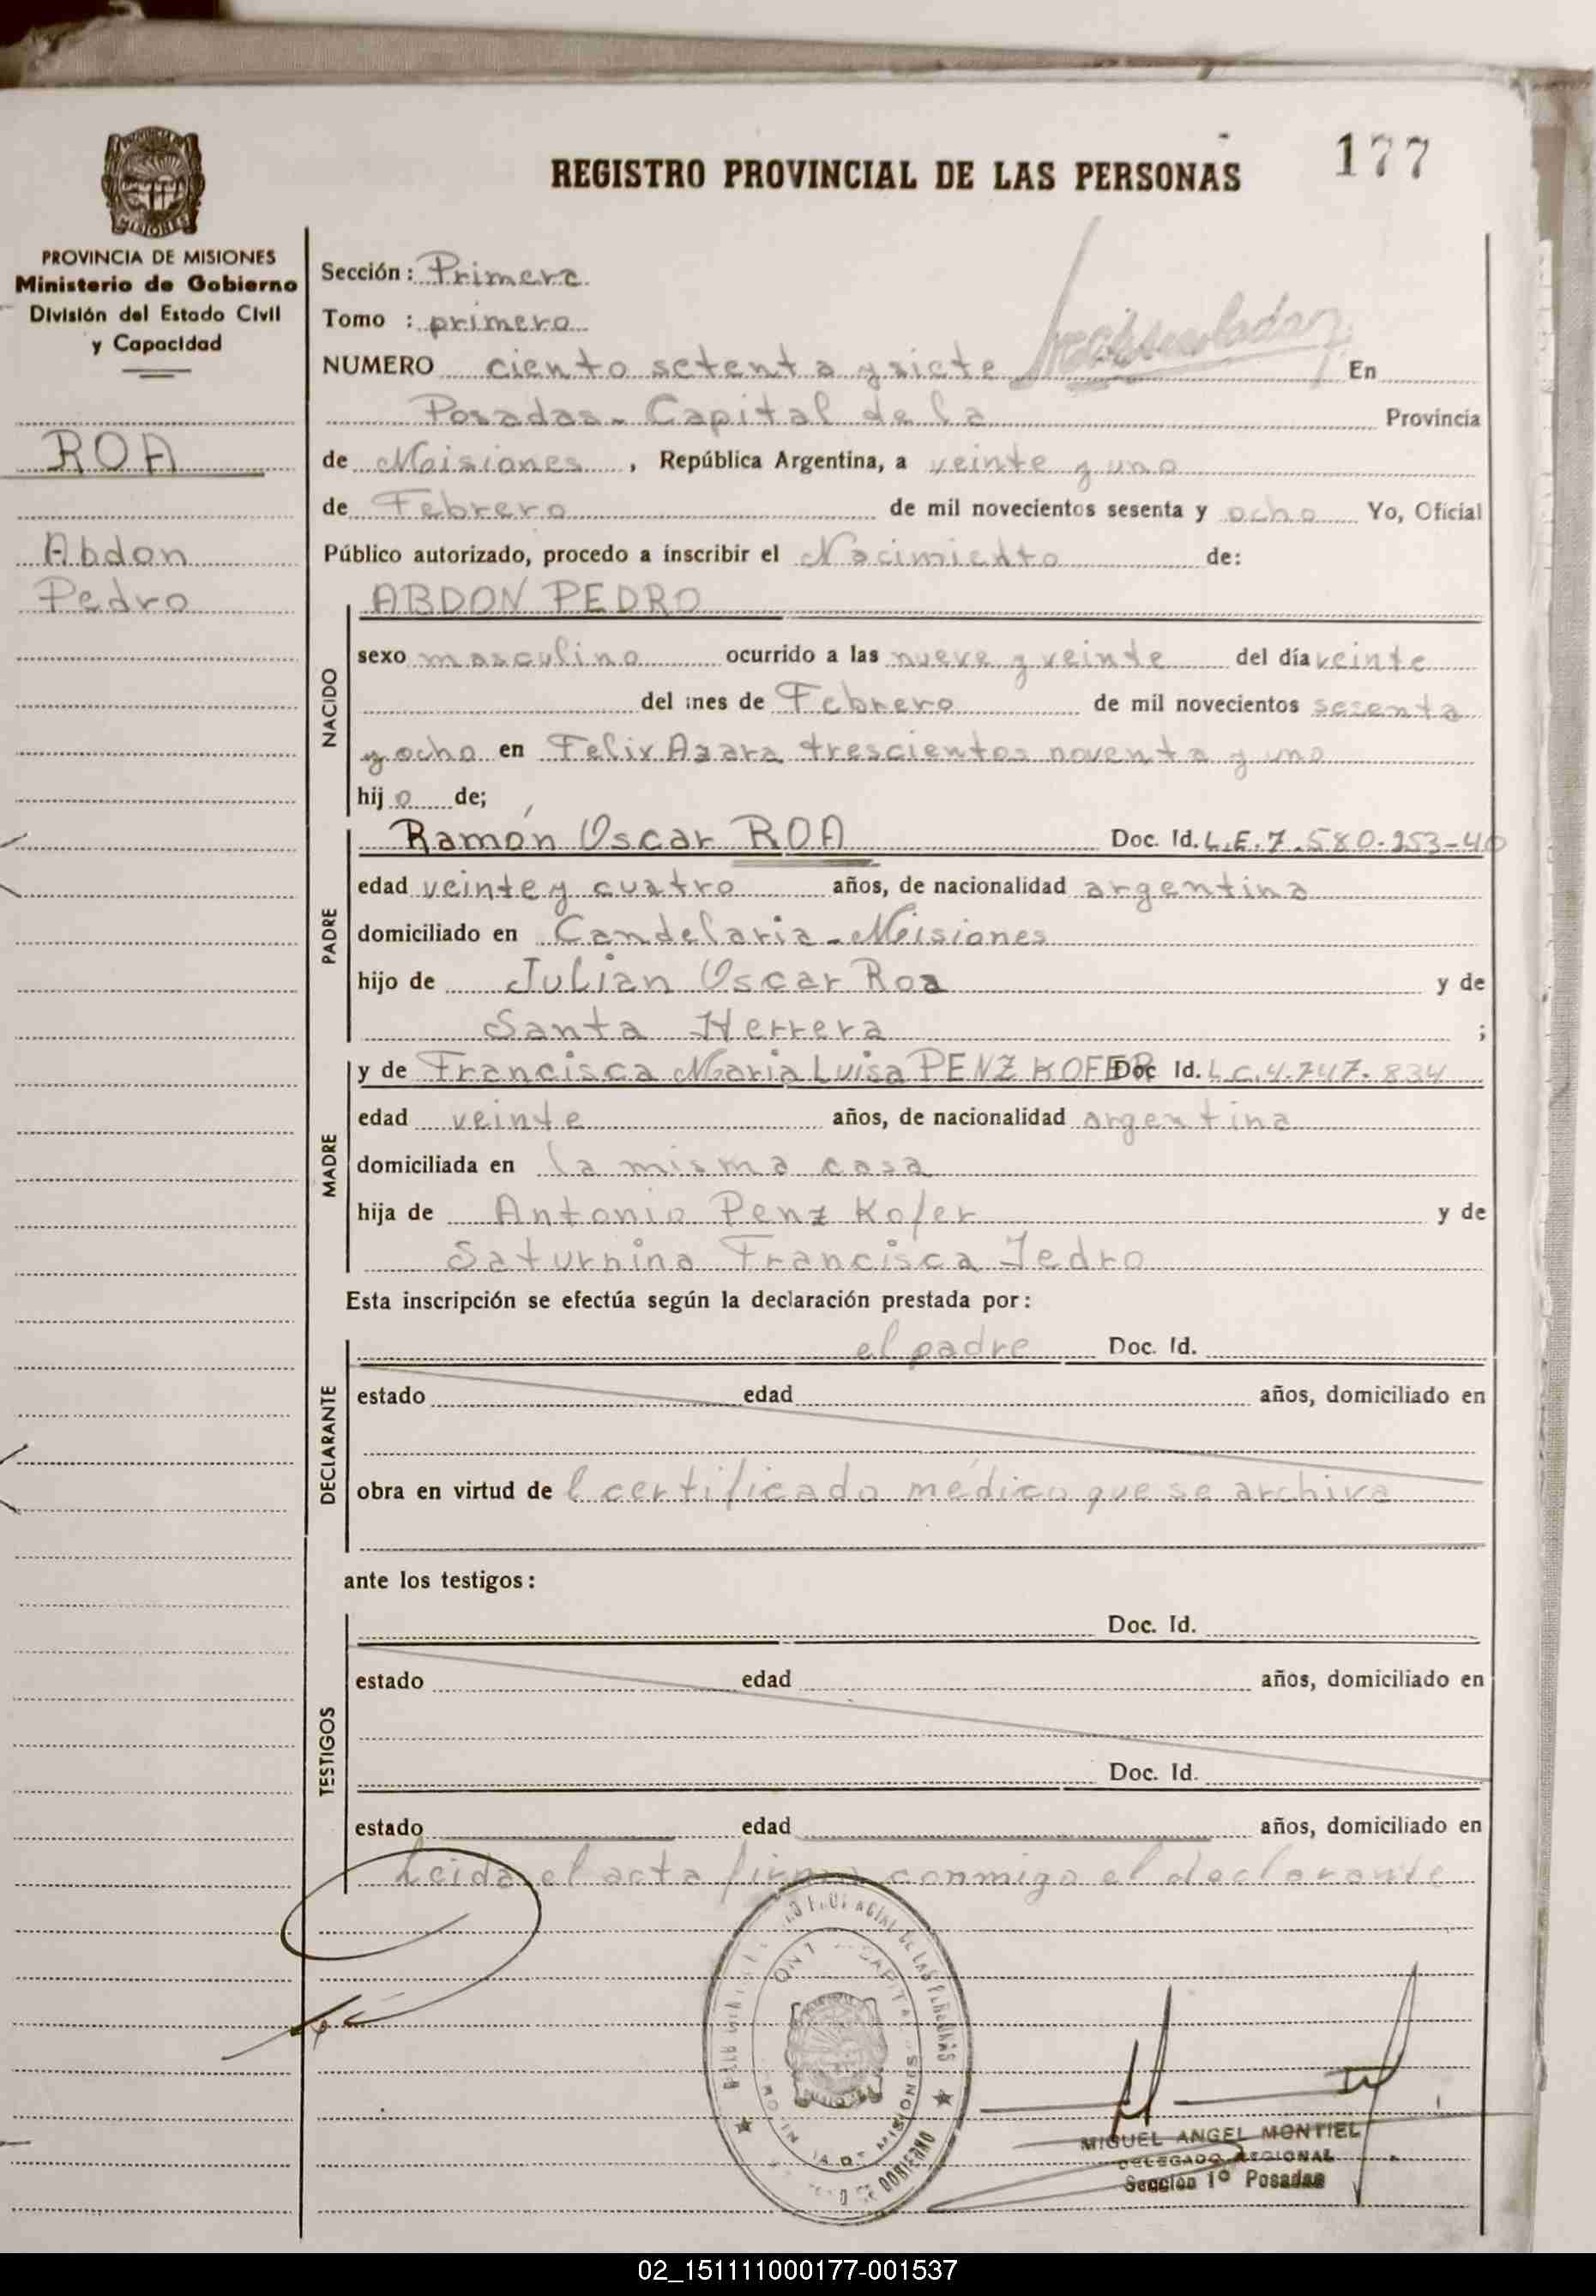 177
REGISTRO PROVINCIAL DE LAS PERSONAS
PROVINCIA DE MISIONES
Ministerio de Gobierno
División del Estado Civil
y Capacidad
ROA
Abdon
Pedro
Sección: Primera
Tomo : primero
NUMERO ciento setenta y siete En
Posadas - Capital de la Provincia
de Misiones, República Argentina, a veinte y uno
de Febrero de mil novecientos sesenta y ocho Yo, Oficial
Público autorizado, procedo a inscribir el Nacimiento de:
NACIDO
ABDON PEDRO
sexo masculino ocurrido a las nueve y veinte del día veinte
del mes de Febrero de mil novecientos sesenta
y ocho en Felix Azara trescientos noventa y uno
hijo de;
PADRE
Ramón Oscar ROA Doc. Id. L.E. 7.580.253-40
edad veinte y cuatro años, de nacionalidad argentina
domiciliado en Candelaria - Misiones
hijo de Julian Oscar Roa y de
Santa Herrera ;
MADRE
y de Francisca Maria Luisa PENZ KOFER Doc Id. L.C. 4.747.834
edad veinte años, de nacionalidad argentina
domiciliada en la misma casa
hija de Antonio Penz Kofer y de
Saturnina Francisca Jedro
Esta inscripción se efectúa según la declaración prestada por:
DECLARANTE
el padre Doc. Id.
estado edad años, domiciliado en
obra en virtud del certificado médico que se archiva
ante los testigos:
TESTIGOS
Doc. Id.
estado edad años, domiciliado en
Doc. Id.
estado edad años, domiciliado en
Leida el acta firma conmigo el declarante
DE LAS PERSONAS
CAPITAL
MISIONES
DE GOBIERNO
MIGUEL ANGEL MONTIEL
DELEGADO REGIONAL
Sección 1º Posadas
02_151111000177-001537